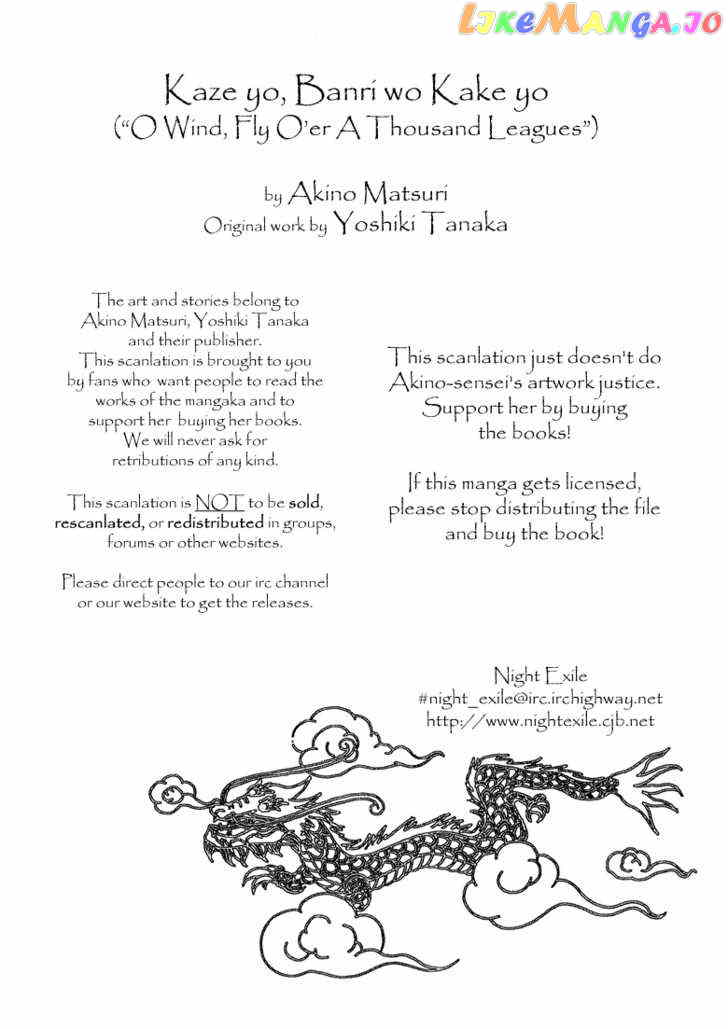 LIKEMANGA.IO
Kaze yo, Banri wo Kake yo
("O Wind, Fly O'er A Thousand Leagues")
by Akino Matsuri
Original work by Yoshiki Tanaka
The art and stories belong to
Akino Matsuri, Yoshiki Tanaka
and their publisher.
This scanlation is brought to you
by fans who want people to read the
works of the mangaka and to
support her buying her books.
We will never ask for
retributions of any kind.
This scanlation is NOT to be sold,
rescanlated, or redistributed in groups,
forums or other websites.
Please direct people to our irc channel
or our website to get the releases.
This scanlation just doesn't do
Akino-sensei's artwork justice.
Support her by buying
the books!
If this manga gets licensed,
please stop distributing the file
and buy the book!
Night Exile
#night_exile@irc.irchighway.net
http://www.nightexile.cjb.net